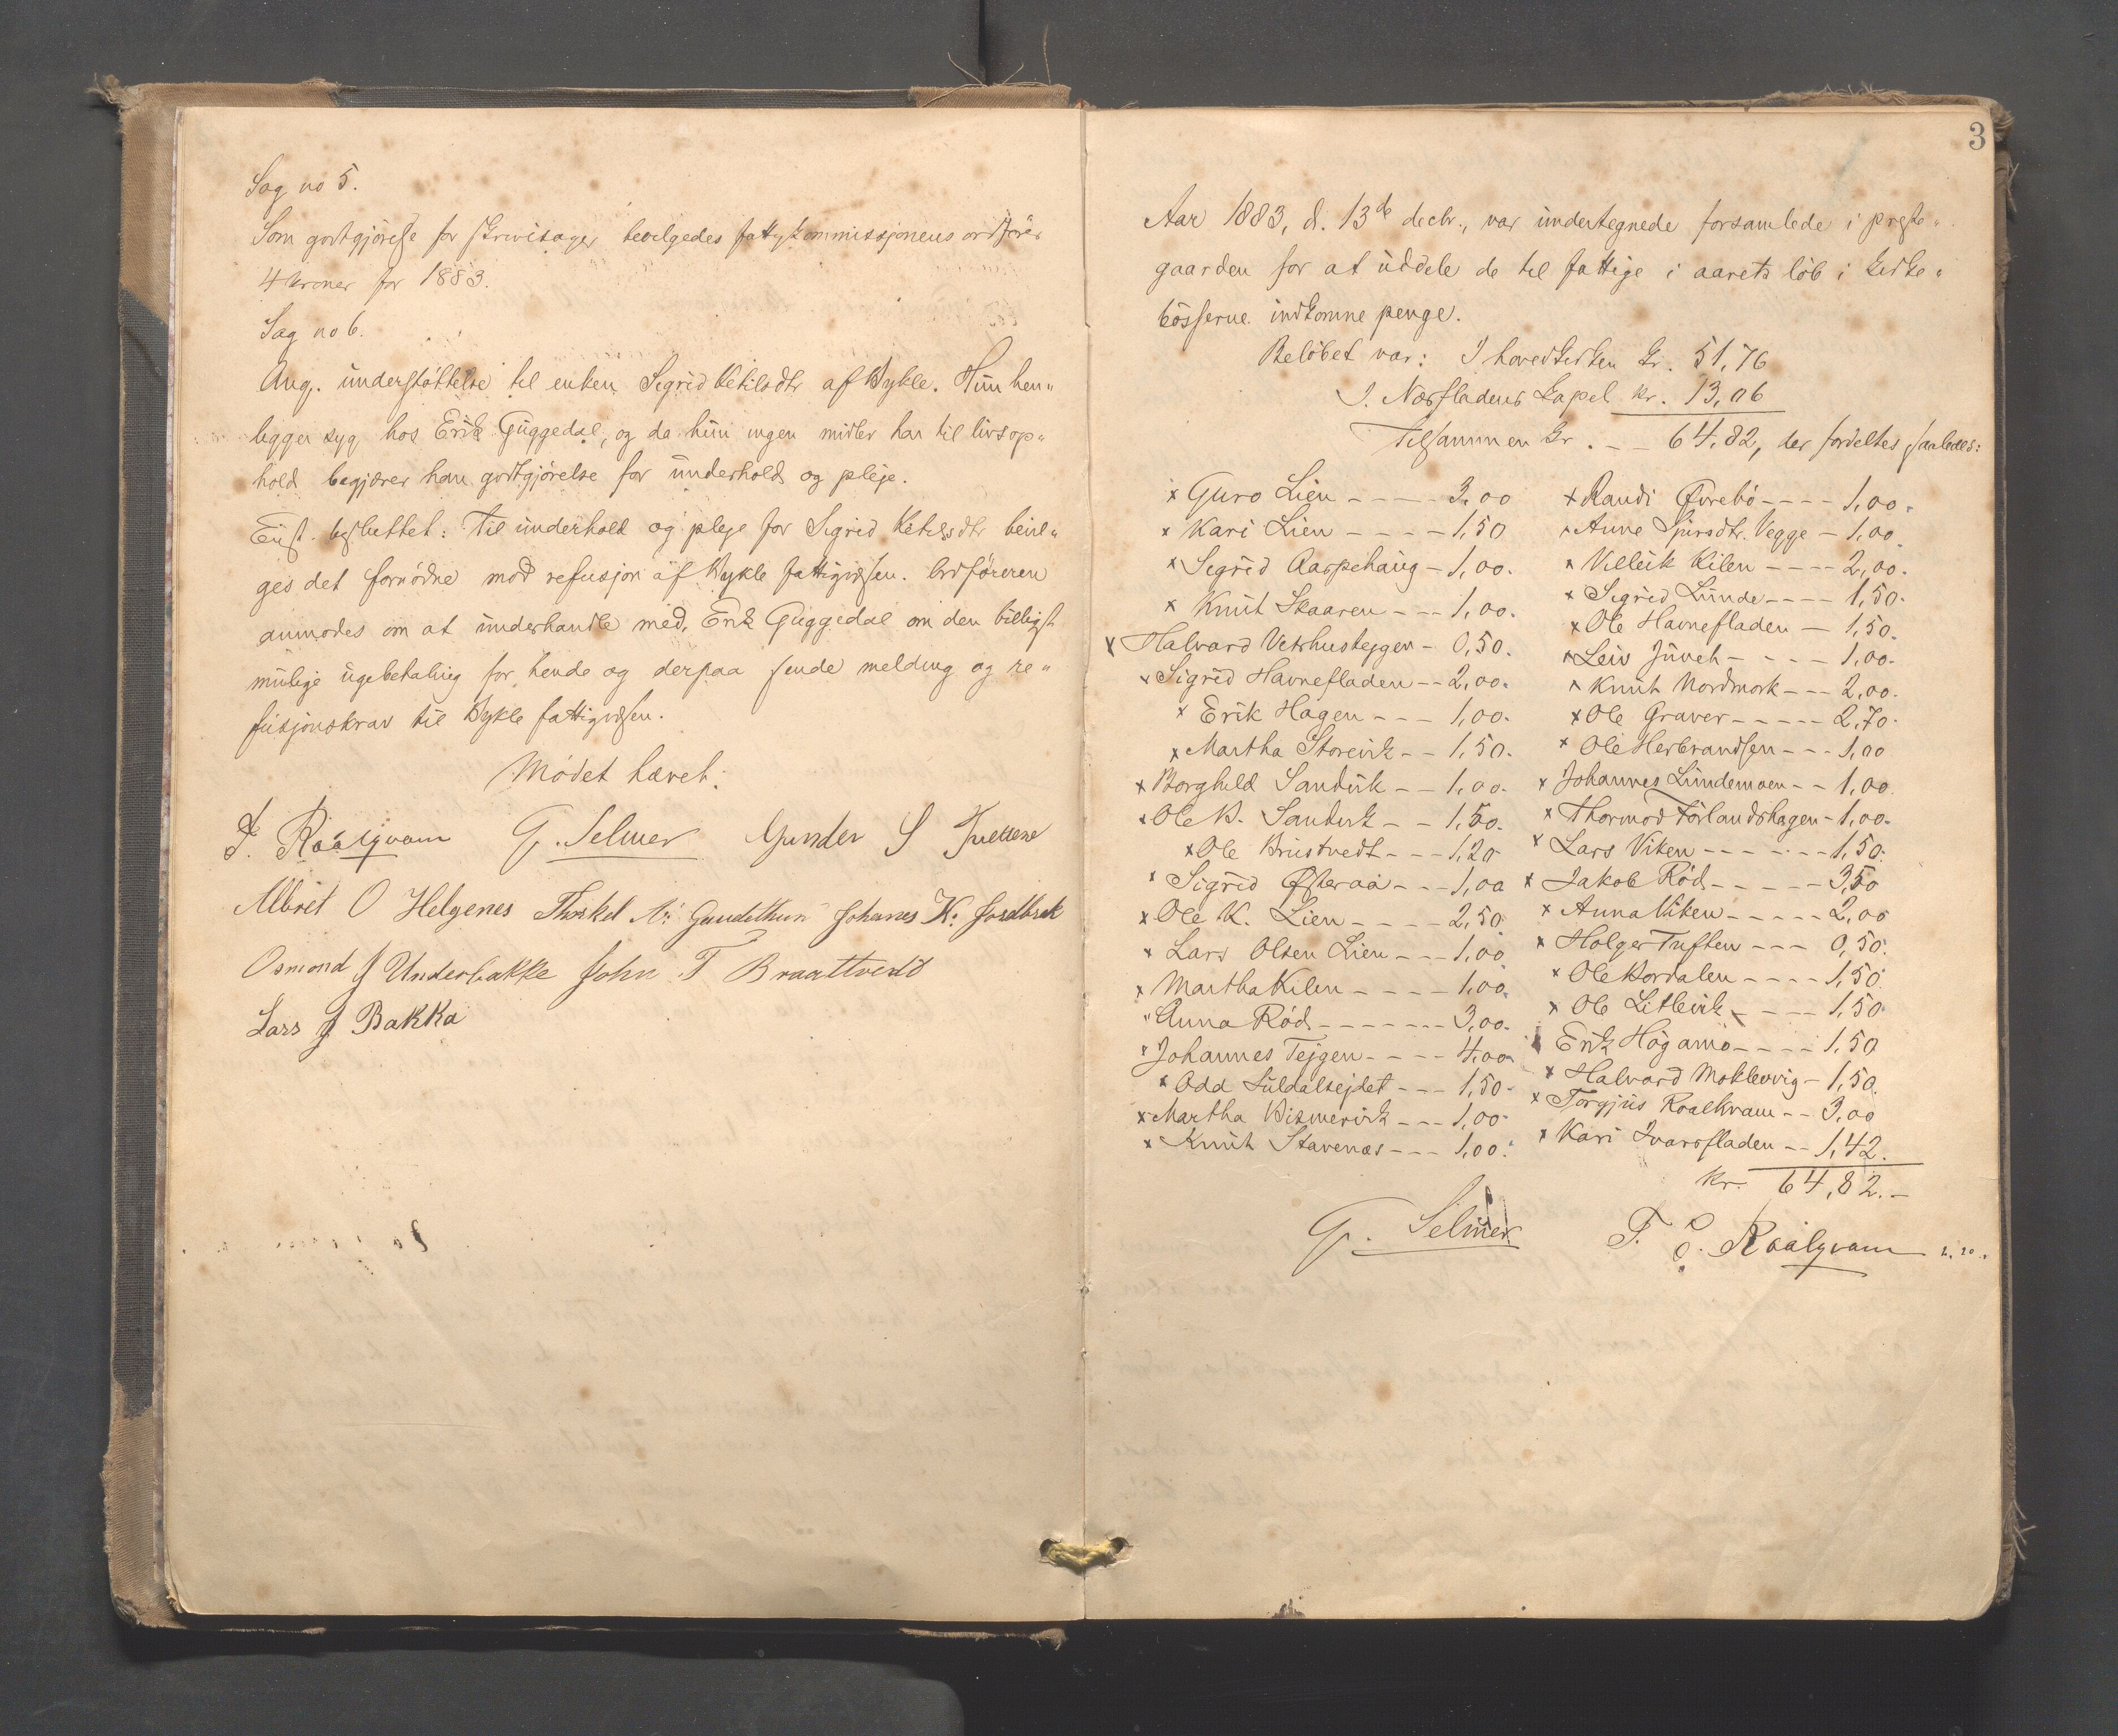 Sag no 5.
Som godtgjörelse for skrivisager bevilgedes fattigkommissjonens ordförer
4 kroner for 1883.
Sag no 6.
Ang. understöttelse til enken Sigrid Ketilsdtr af Bykle. Hun hen„
ligger syg hos Erik Guggedal, og da hun ingen midler har til livsop„
hold begjærer han godtgjörelse for underhold og pleje.
Enst. besluttet: Til underhold og pleje for Sigrid Ketilsdtr bevil„
ges det fornödne mod refusjon af Bykle fattigvæsen. Ordföreren
anmodes om at underhandle med Erik Guggedal om den billigst
mulige ugebetaling for hende og derpaa sende melding og re„
fusjonskrav til Bykle fattigvæsen.
Mödet hævet.
Roalqvam G. Selmer Gunder S
Albret O Helgenes Thorkel Johanes K.
Osmond J Underbakke John T Braattvedt
Lars J Bakka
3
Aar 1883, d. 13de decbr., var undertegnede forsamlede i preste„
gaarden for at uddele de til fattige i aarets löb i kirke„
bösserne indkomne penge.
Belöbet var: I hovedkirken kr. 51,76
I. Næsfladens kapel kr. 13,06
Tilsammen kr. — 64,82, der fordeltes saaledes:
x Guro Lien - - - - 3,00
x Kari Lien - - - - 1,50
x Sigrid Aarpehaug - 1,00.
x Knut Skaaren - - - 1,00.
x Halvard Vetrhusteggen - 0,50.
x Sigrid Havrefladen - - 2,00.
x Erik Hagen - - - 1,00.
x Martha Storevik - - 1,50.
x Borghild Sandvik - - 1,00.
x Ole B. Sandvik - - 1,50.
x Ole Brustvedt - - - 1,20
x Sigrid Österaa - - - 1,00
x Ole K. Lien - - - - 2,50.
x Lars Olsen Lien - - - 1,00.
x Martha Kilen - - - - 1,00.
x Anna Röd - - - - - - 3,00.
x Johannes Tejgen - - - - 4,00
x Odd Suldalsejdet - - - 1,50
x Martha Vismervik - - - 1,00
x Knut Stavenæs - - - 1,00.
x Randi Övrebö - - - - 1,00.
x Anne Sjursdtr. Vegge - 1,00.
x Velleik Kilen - - - - 2,00.
x Sigrid Lunde - - - - 1,50.
x Ole Havrefladen - 1,50.
x Leiv Juveh - - - - 1,00.
x Knut Nordmork - - - 2,00.
x Ole Graver - - - - - 2,70.
x Ole Herbrandsen - - - 1,00
x Johannes Lundemoen - - 1,00.
x Thormod Förlandshagen - 1,00.
x Lars Viken - - - - - - 1,50.
x Jakob Röd - - - - - 3,50
x Anna Viken - - - - - 2,00
x Holger Tuften - - - 0,50.
x Ole Nordalen - - - - 1,50.
x Ole Litlevik - - - - 1,50.
Erik Högamo - - - - 1,50
x Halvard Moklevvig - 1,50.
x Torgjus Roalkvam - - 3,00
x Kari Ivarsfladen - - 1,42.
kr. 64,82.-
G. Selmer T. Roalqvam